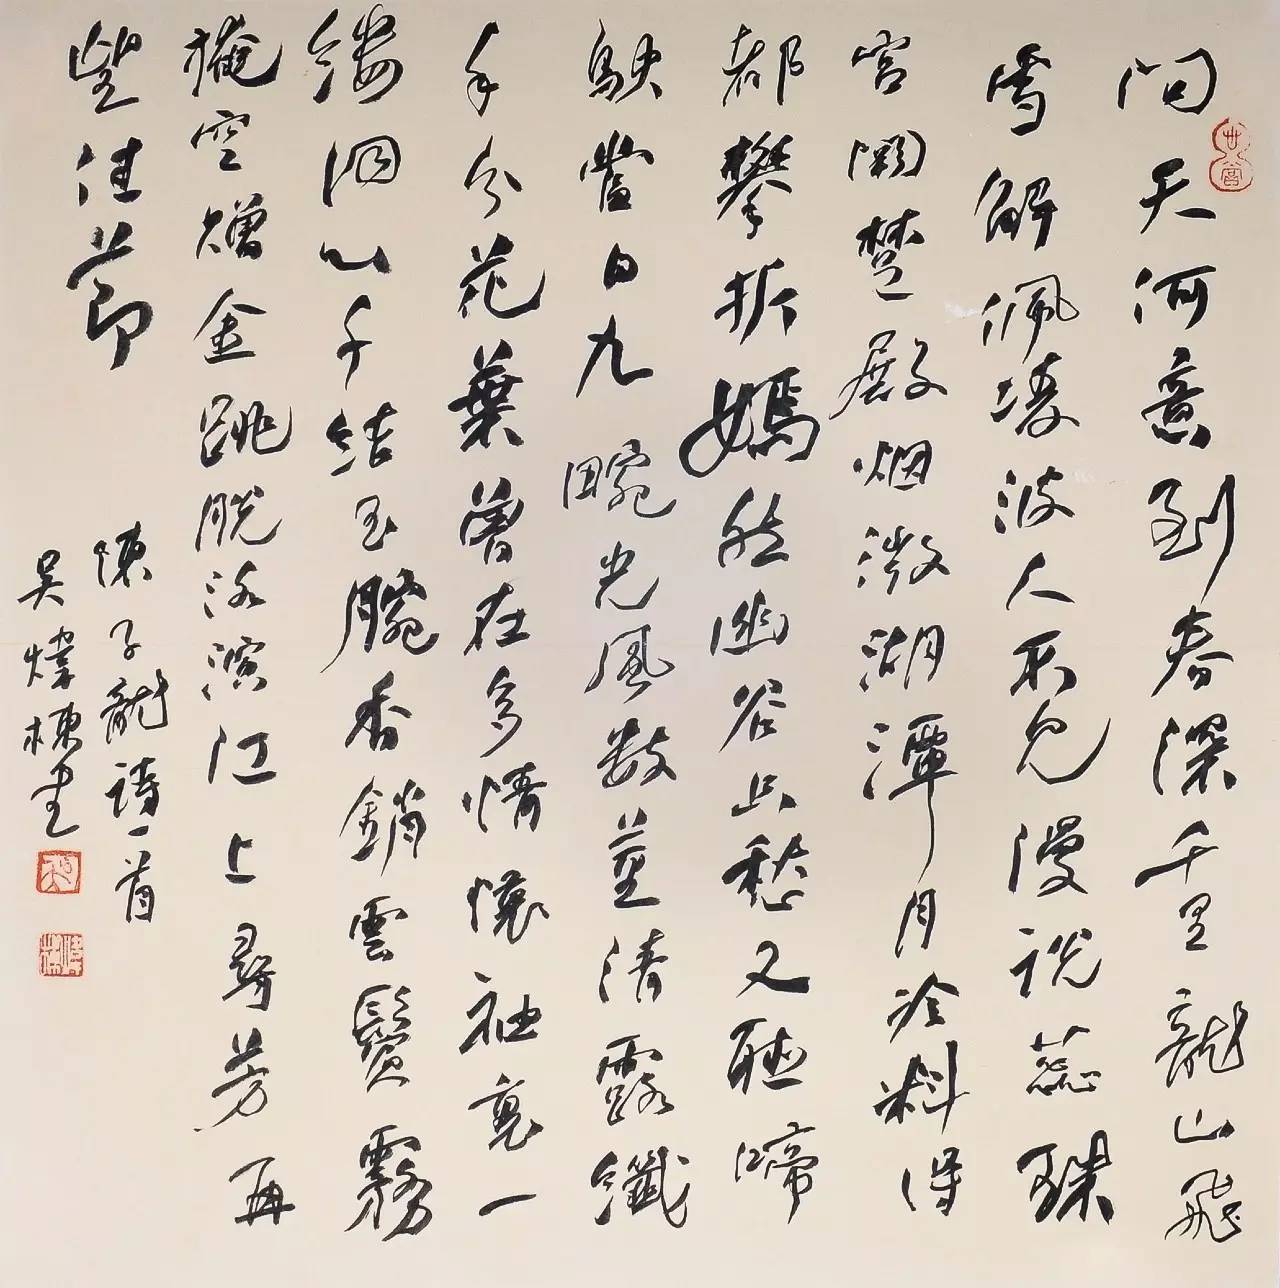 問天何意到春深千里龍山飛
雪解佩凌波人不見漫説蕊珠
宮闕楚殿烟微湖潭月冷料得
都攀折嫣然幽谷只愁又聽啼
鴃當日九畹光風数莖清露纖
手分花葉曾在多情懷袖裏一
縷同心千結玉腕香銷雲鬢霧
掩空贈金跳脱洛濱江上尋芳再
望佳節
陳子龍詩一首
吴煒棟書